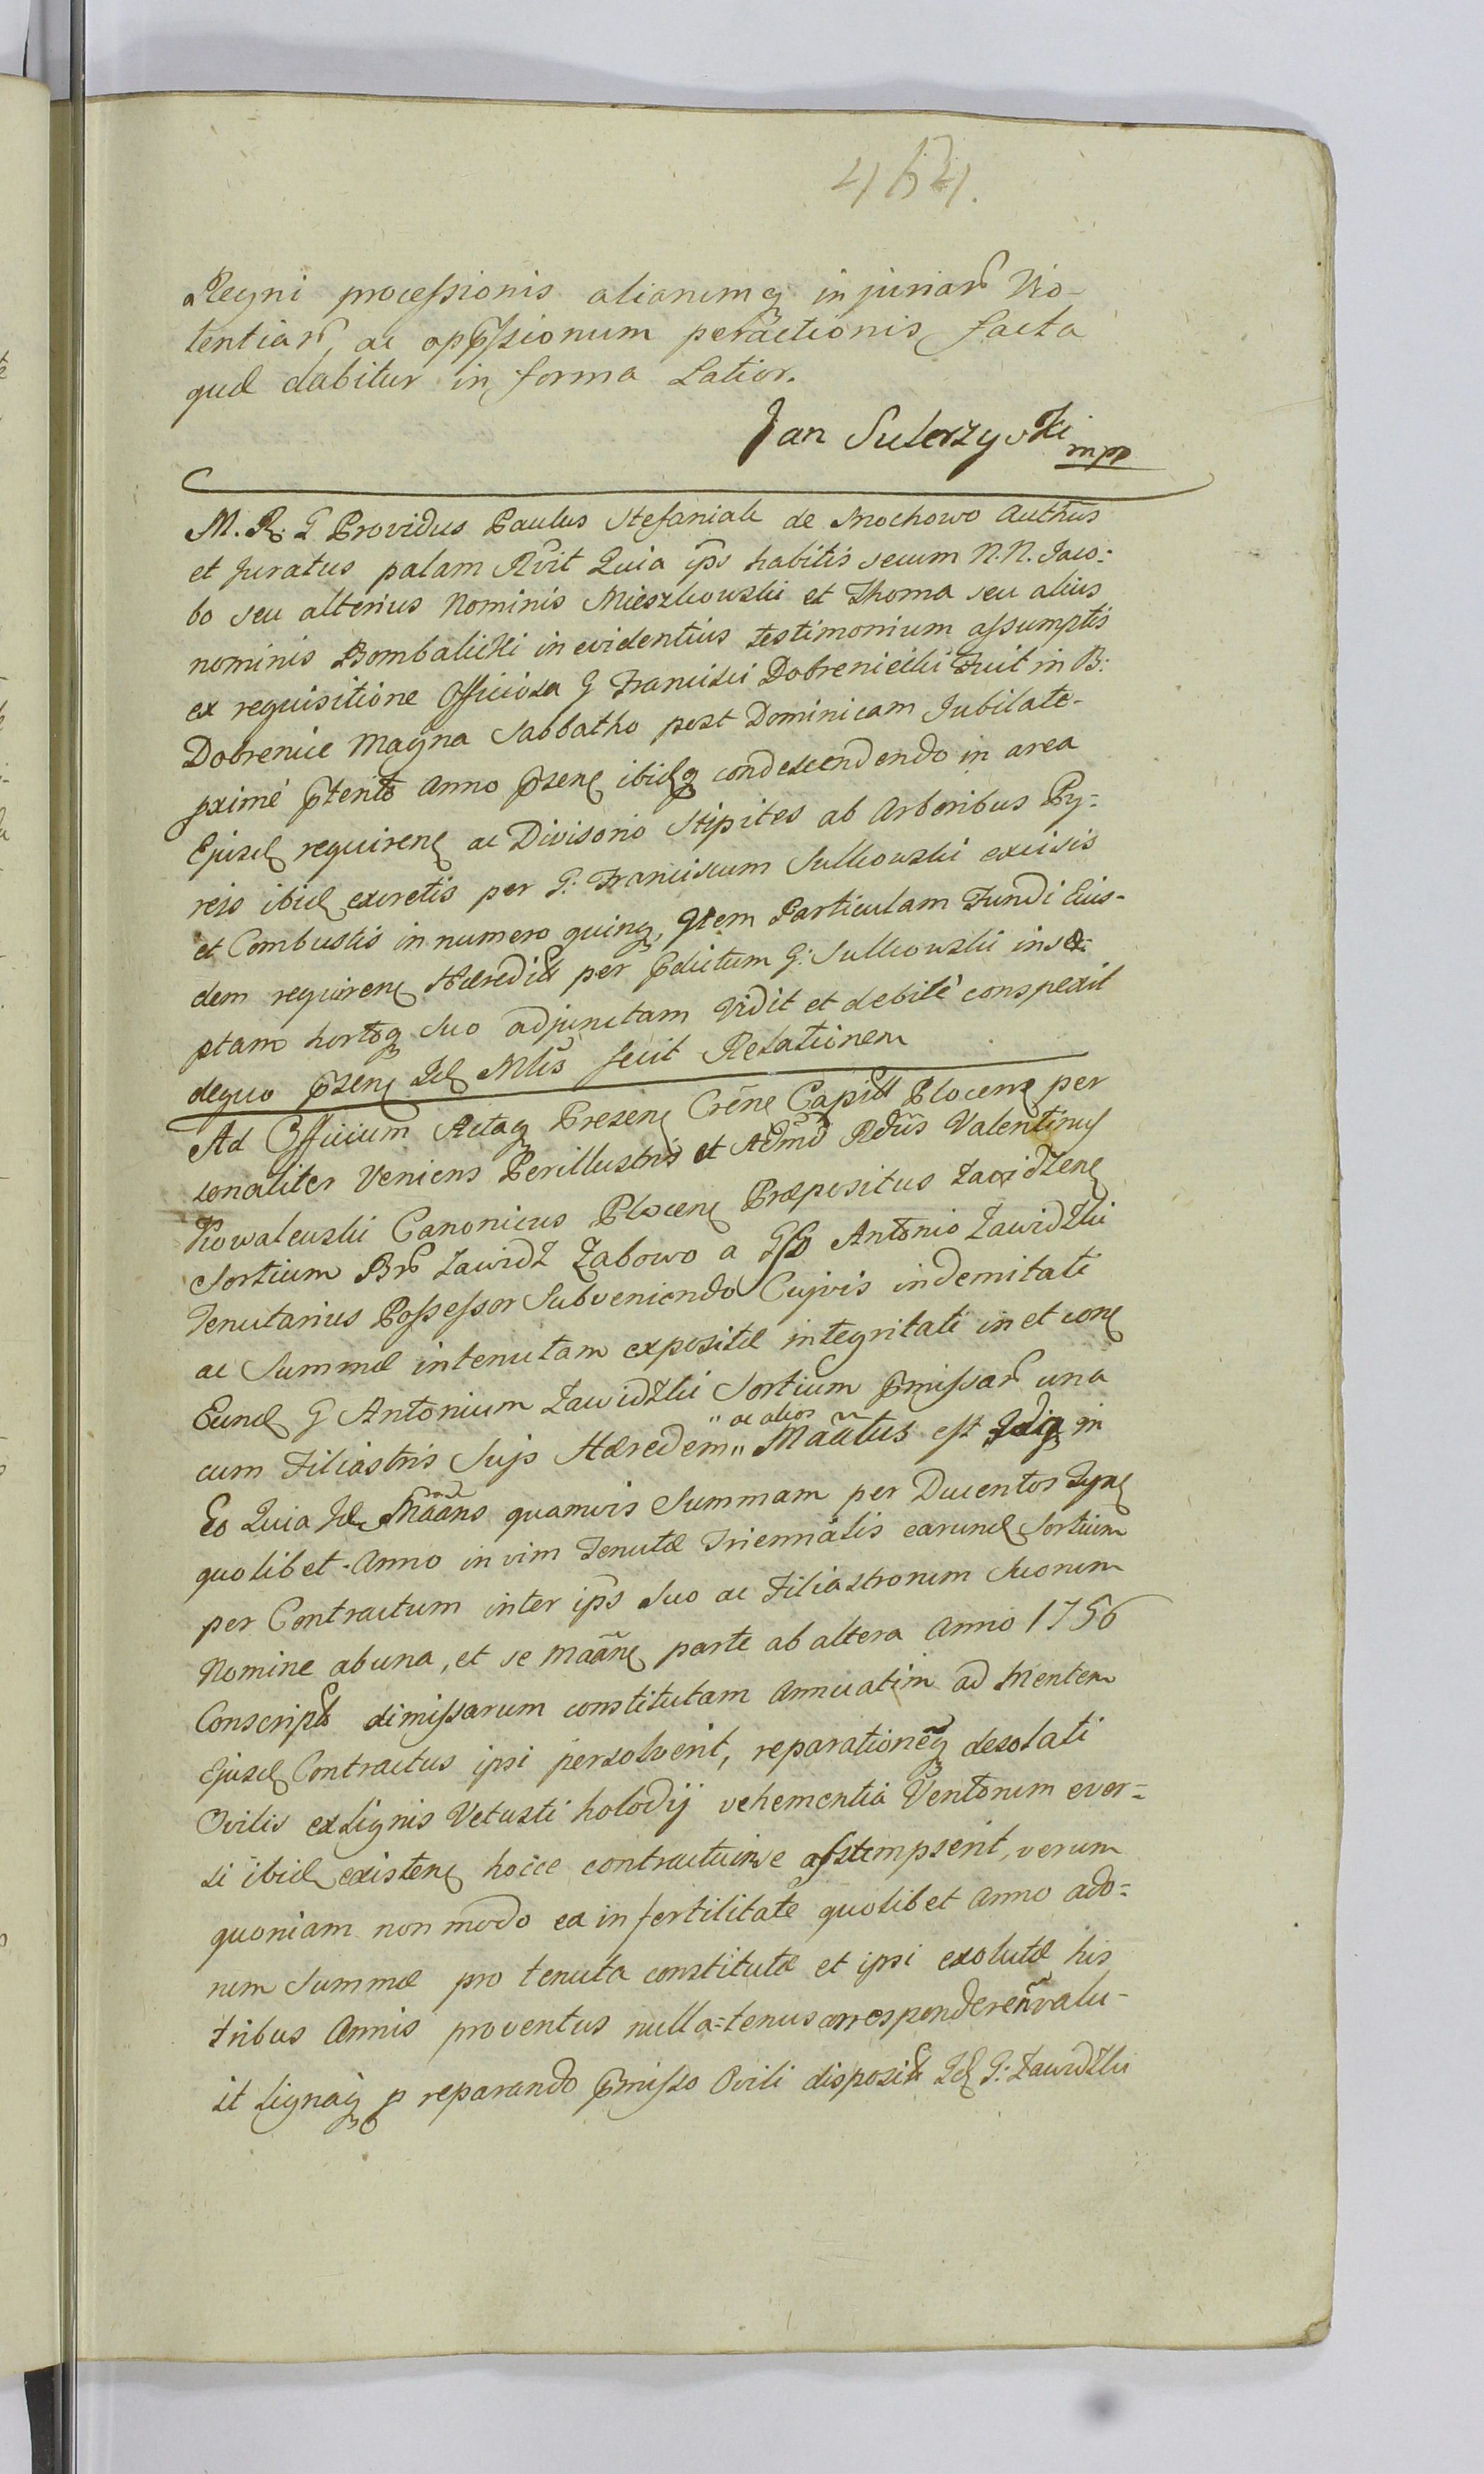 454.
Regni processionis aliarumq injuriar Vio-
lentiar, ac oppssionum peractionis facta
quæ dabitur in forma Latior.
Jan Sulerzyski
mpp
M. R. G Providus Paulus Stefaniak de Mochowo Authus
et Juratus palam Rvit Quia ips habitis secum N.N. Jaco=
bo seu alterius Nominis Mieszkowski et Thoma seu alius
nominis Bombalicki in evidentius testimonium assumptis
ex requisitione Officiosa G Francisci Dobreniecki Fuit in B:
Dobrenice Magna Sabbatho post Dominicam Jubilate-
pxime pterito Anno pzen ibidq condescendendo in area
Ejusd requiren ac Divisorio Stipites ab Arboribus Py=
reis ibid excretis per G: Franciscum Sulkowski excisis
et Combustis in numero quinq, Item Particulam Fundi Eius-
dem requiren Hæredit per pdictum G: Sulkowski inse-
ptam hortoq suo adjunctam Vidit et debite conspexit
dequo pzen Id Mlis fecit Relationem
Ad Officium Actaq Prezen Crene Capitl Plocen per
sonaliter Veniens Perillustris et Admd Rdus Valentinus
Kowalewski Canonicus Plocen Præpositus Zawidzen
Sortium Br Zawidz Zabowo a Gso Antonio Zawidzki
Tenutarius Possessor Subveniendo Cujvis indemitati
ac Summæ intenutam expositæ integritati in et con
Eund G Antonium Zawidzki Sortium pmissar una
cum Filiastris Suis Hæredem " ac alios " Maãtus est in
Eo Quia Id Maãns quamvis Summam per Ducentos Tyn
quolibet Anno in vim Tenutæ Triennalis earund Sortium
per Contractum inter ips suo ac Filiastrorum Suorum
Nomine abuna, et se maãn parte ab altera Anno 1756
Conscript dimissarum constitutam annuatim ad mentem
Ejusd Contractus ipsi persolverit, reparationeq desolati
Ovilis ex Lignis Vetusti holodij vehementia Ventorum ever=
si ibid existen hocce contractui in se assumpserit, verum
quoniam non modo ex infertilitate quolibet Anno ado=
rum Summæ pro tenuta constitutæ et ipsi exolutæ his
tribus Annis proventus nulla=tenus correspondere valu-
it Lignaq p reparando pmisso Ovili disposit Id G: Zawidzki